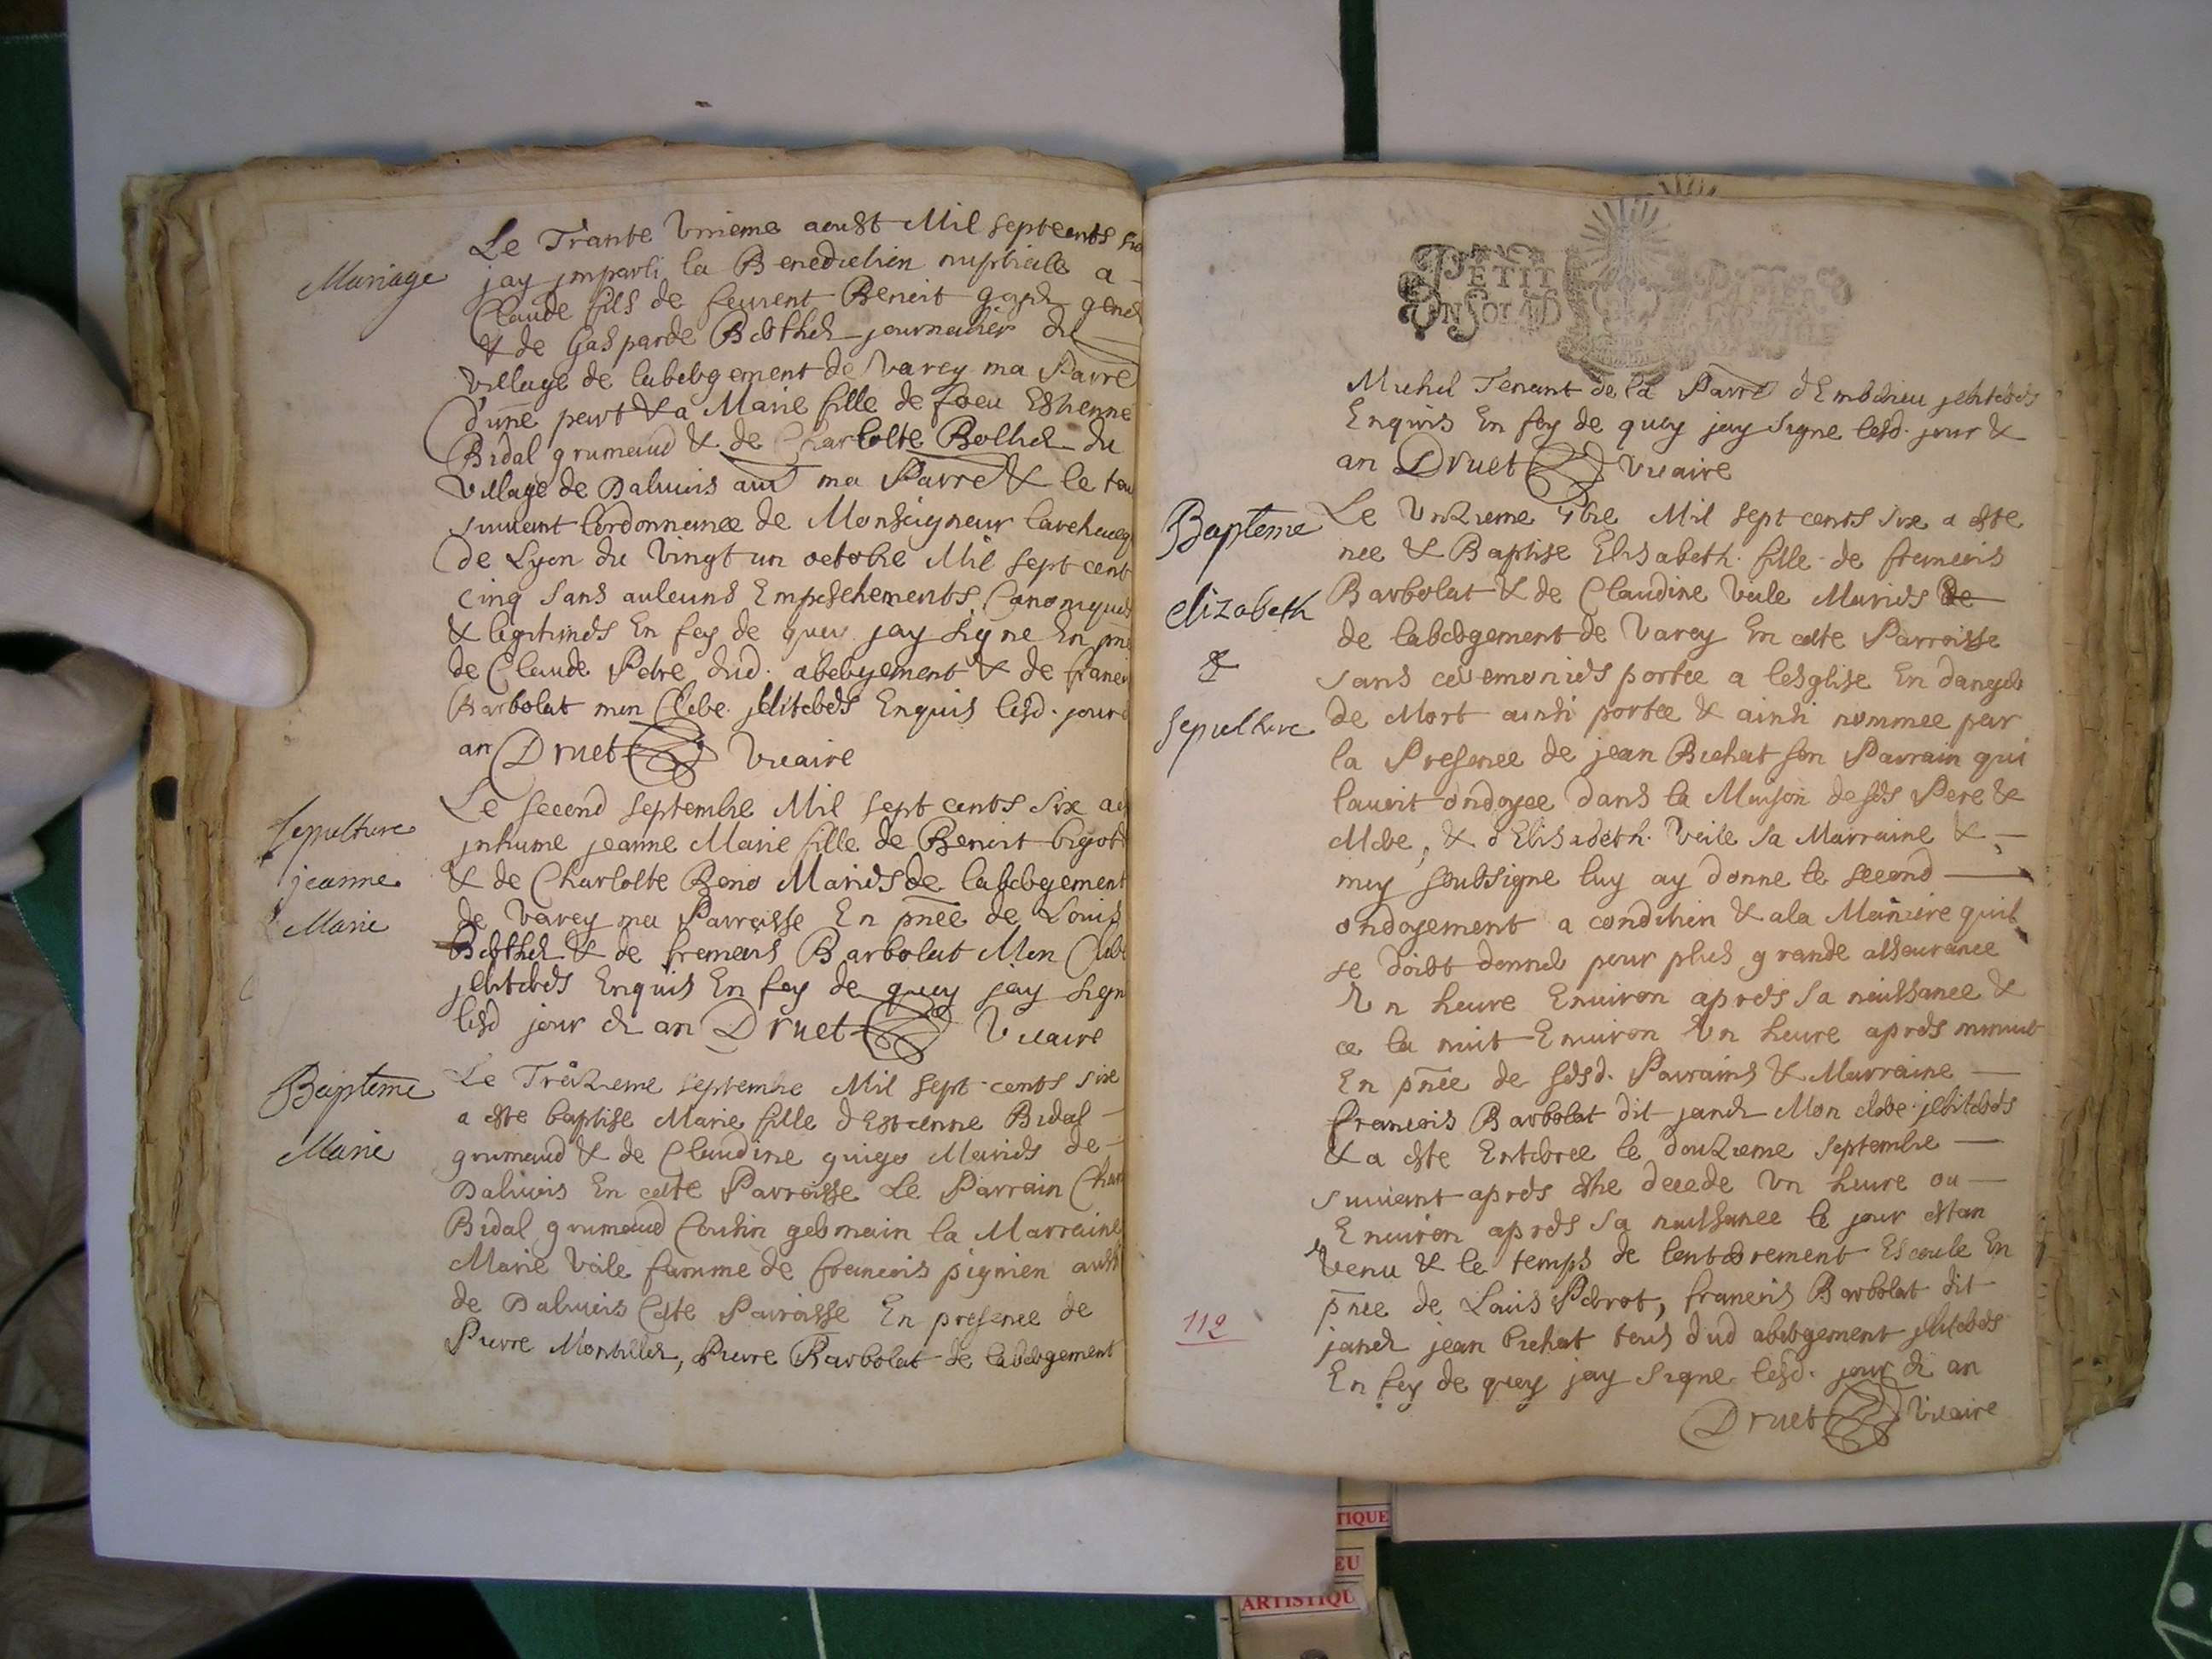 Mariage
Le Trante Vnieme aoust Mil septcents
jay jmparti la Benediction nuptiale a
Claude fils de feurent Benoit
& de Gasparde Berthet journalier du
village de labergement de Varey ma Parre
d'une part & a Marie fille de feeu Estienne
Bidal grumeaud & de Charlotte Bolliet du
Village de Dalivois ma Parre & le tou
suiuant lordonnance de Monseigneur
de Lyon du Vingt un octobre Mil sept cent
cinq sans aulcuns Empeschements Canoniques
& legitimes En foy de quoy jay signe En pnce
de Claude Pere dud. abergement & de francoi
Barbolat mon Clerc jlliterés Enquis lesd. jour
an Druet Vicaire
Sepulture
jeanne
Marie
Le second septembre Mil sept cents six
jnhumé jeanne Marie fille de Benoit
& de Charlotte Mariés de labergement
de Varey ma Parroisse En pnce de Louis
Berthet & de francois Barbolat Mon Clerc
jlliterés Enquis En foy de quoy jay sign
lesd jour & an Druet Vicaire
Bapteme
Marie
Le Treizieme septembre Mil sept cents six
a este baptise Marie fille d Estienne Bidal
grumeaud & de Claudine guigo Mariés de
Dalivois En cette Parroisse Le Parrain
Bidal grumeaud Cousin germain la Marraine
Marie Veile famme de francois pignien
de Dalivois Cette Parroisse En presence de
Pierre Montillet, Pierre Barbolat de labergement
PETIT
EN SOL 4 D
PAPIER
Michel Tenant de la Parre dEmberieu jlliterés
Enquis En foy de quoy jay signe lesd. jour &
an Druet Vicaire
Bapteme
elizabeth
&
sepulture
Le Vnzieme 7bre Mil sept cents six a este
née & Baptise Elisabeth fille de francois
Barbolat & de Claudine Veile Mariés de
de labergement de Varey En cette Parroisse
sans ceremonies portée a lesglise En danger
de Mort ainsi portée & ainsi nommée par
la Presence de jean Buchat son Parrain qui
lauoit ondoyee dans la Maison de ses Pere &
Mere, & d Elisabeth Veile sa Marraine &
moy soubsigne luy ay donne le second
ondoyement a condition & a la Maniere quil
se doibt donner pour plus grande asseurance
Vn heure Enuiron apres sa naissance &
ce la nuit Enuiron Vn heure apres minuit
En pnce de sesd. Parrains & Marraine
francois Barbolat dit janet Mon clerc jlliterés
& a este Enterree le douzieme septembre
suiuant apres estre decede Vn heure ou
Enuiron apres sa naissance le jour estan
Venu & le temps de lenterrement Escoule En
pnce de Louis Perrot, francois Barbolat dit
janet jean Buchat tous dud abergement jlliterés
En foy de quoy jay signe lesd. jour & an
Druet Vicaire
112
TIQUE
EU
ARTISTIQU